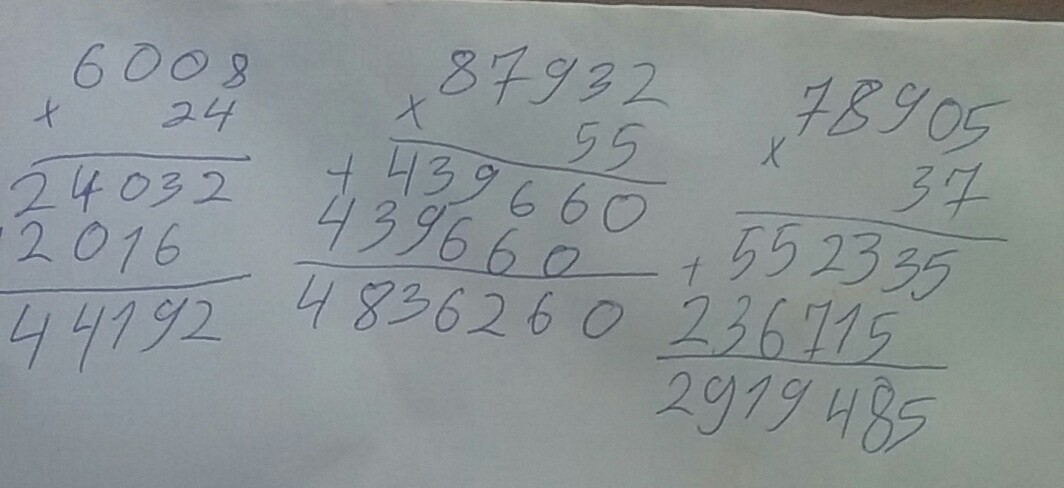 6008
× 24
24032
2016
44192
× 87932
55
+ 439660
439660
4836260
× 78905
37
+ 552335
236715
2919485